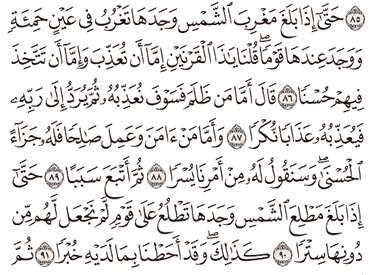 ﴿٨٥﴾ حَتَّىٰٓ إِذَا بَلَغَ مَغْرِبَ ٱلشَّمْسِ وَجَدَهَا تَغْرُبُ فِى عَيْنٍ حَمِئَةٍ
وَوَجَدَ عِندَهَا قَوْمًا ۗ قُلْنَا يَٰذَا ٱلْقَرْنَيْنِ إِمَّآ أَن تُعَذِّبَ وَإِمَّآ أَن تَتَّخِذَ
فِيهِمْ حُسْنًا ﴿٨٦﴾ قَالَ أَمَّا مَن ظَلَمَ فَسَوْفَ نُعَذِّبُهُۥ ثُمَّ يُرَدُّ إِلَىٰ رَبِّهِۦ
فَيُعَذِّبُهُۥ عَذَابًا نُّكْرًا ﴿٨٧﴾ وَأَمَّا مَنْ ءَامَنَ وَعَمِلَ صَٰلِحًا فَلَهُۥ جَزَآءً
ٱلْحُسْنَىٰ ۖ وَسَنَقُولُ لَهُۥ مِنْ أَمْرِنَا يُسْرًا ﴿٨٨﴾ ثُمَّ أَتْبَعَ سَبَبًا ﴿٨٩﴾ حَتَّىٰٓ
إِذَا بَلَغَ مَطْلِعَ ٱلشَّمْسِ وَجَدَهَا تَطْلُعُ عَلَىٰ قَوْمٍ لَّمْ نَجْعَل لَّهُم مِّن
دُونِهَا سِتْرًا ﴿٩٠﴾ كَذَٰلِكَ ۖ وَقَدْ أَحَطْنَا بِمَا لَدَيْهِ خُبْرًا ﴿٩١﴾ ثُمَّ